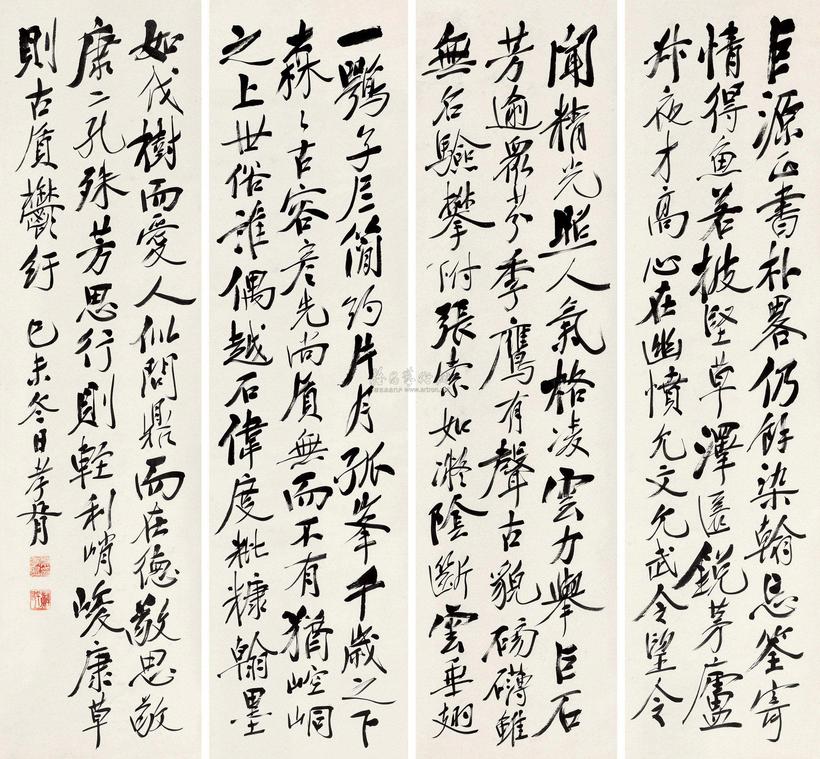 巨源正書朴畧仍餘染翰忘筌寄
情得魚若披堅草澤匿銳茅廬
叔夜才高心在幽憤允文允武令望令
聞精光照人氣格凌雲力舉巨石
芳逾眾芬季鷹有聲古貌磅礴雖
無名驗攀附張索如凝陰斷雲垂翅
一鶚子尼簡約片月孤峯千歲之下
森〻古容彥先尚質無而不有猶崆峒
之上世俗誰偶越石偉度秕糠翰墨
如伐樹而愛人似問鼎而在德敬思敬
康二孔殊芳思行則輕利峭峻康草
則古質鬱紆 己未冬日孝胥